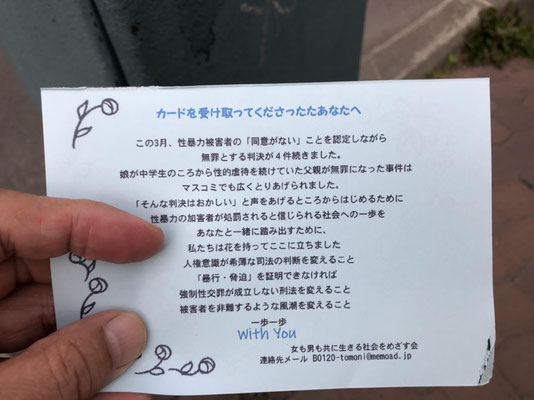 カードを受け取ってくださったたあなたへ
この3月、性暴力被害者の「同意がない」ことを認定しながら
無罪とする判決が4件続きました。
娘が中学生のころから性的虐待を続けていた父親が無罪になった事件は
マスコミでも広くとりあげられました。
「そんな判決はおかしい」と声をあげるところからはじめるために
性暴力の加害者が処罰されると信じられる社会への一歩を
あなたと一緒に踏み出すために、
私たちは花を持ってここに立ちました
人権意識が希薄な司法の判断を変えること
「暴行・脅迫」を証明できなければ
強制性交罪が成立しない刑法を変えること
被害者を非難するような風潮を変えること
一歩一歩
With You
女も男も共に生きる社会をめざす会
連絡先メール B0120-tomoni@memoad.jp